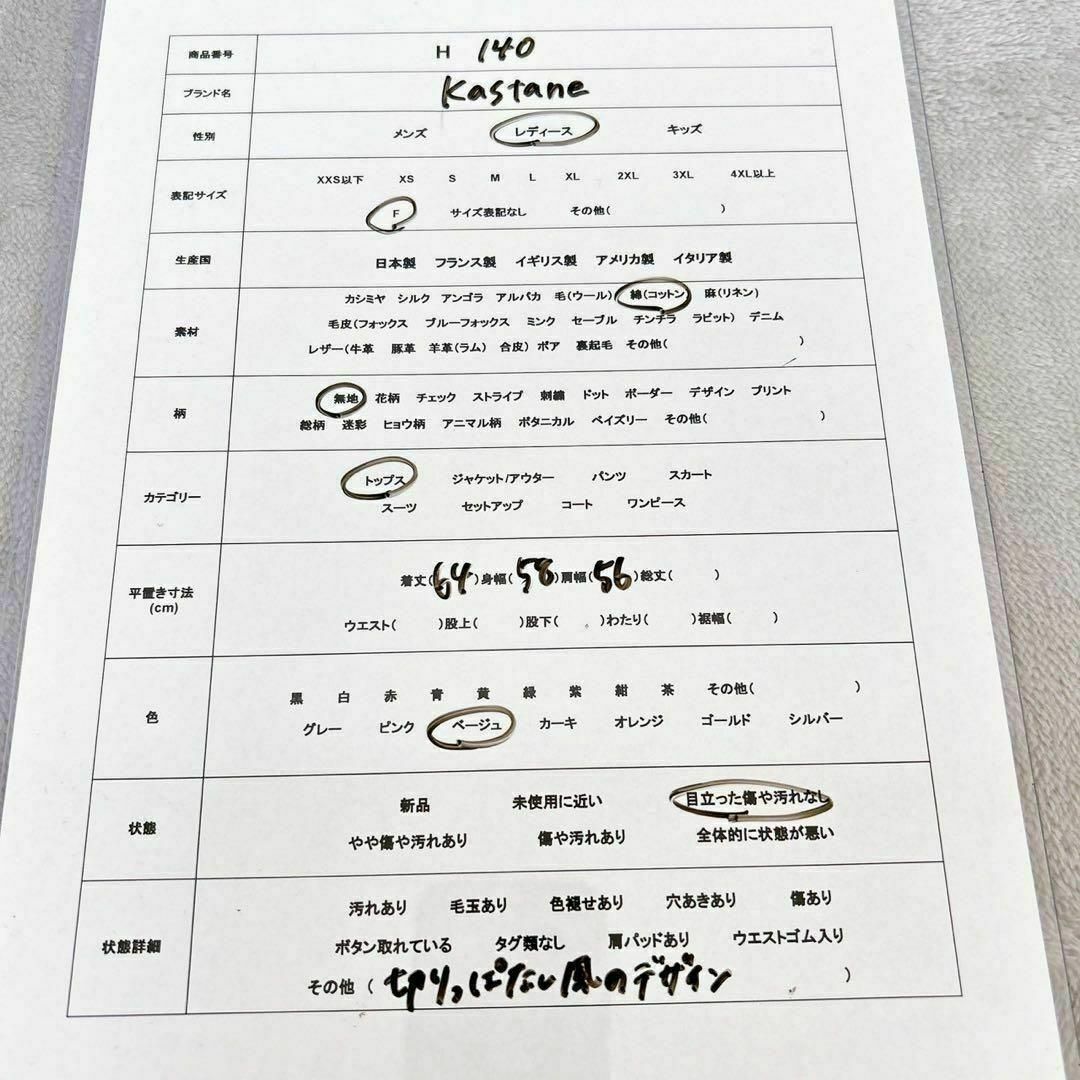 商品番号 H 140
ブランド名 Kastane
性別 メンズ レディース キッズ
表記サイズ
XXS以下 XS S M L XL 2XL 3XL 4XL以上
F サイズ表記なし その他( )
生産国 日本製 フランス製 イギリス製 アメリカ製 イタリア製
素材
カシミヤ シルク アンゴラ アルパカ 毛(ウール) 綿(コットン) 麻(リネン)
毛皮(フォックス ブルーフォックス ミンク セーブル チンチラ ラビット) デニム
レザー(牛革 豚革 羊革(ラム) 合皮) ボア 裏起毛 その他( )
柄
無地 花柄 チェック ストライプ 刺繍 ドット ボーダー デザイン プリント
総柄 迷彩 ヒョウ柄 アニマル柄 ボタニカル ペイズリー その他( )
カテゴリー
トップス ジャケット/アウター パンツ スカート
スーツ セットアップ コート ワンピース
平置き寸法
(cm)
着丈(64)身幅(58)肩幅(56)総丈( )
ウエスト( )股上( )股下( )わたり( )裾幅( )
色
黒 白 赤 青 黄 緑 紫 紺 茶 その他( )
グレー ピンク ベージュ カーキ オレンジ ゴールド シルバー
状態
新品 未使用に近い 目立った傷や汚れなし
やや傷や汚れあり 傷や汚れあり 全体的に状態が悪い
状態詳細
汚れあり 毛玉あり 色褪せあり 穴あきあり 傷あり
ボタン取れている タグ類なし 肩パッドあり ウエストゴム入り
その他 ( 切りっぱなし風のデザイン )